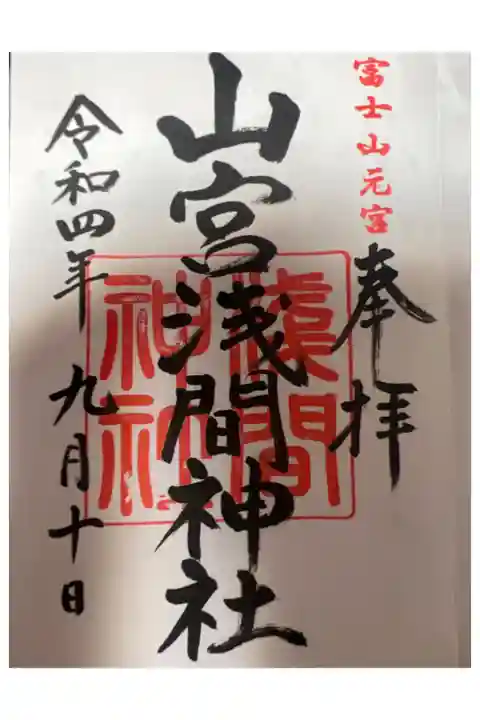 富士山元宮
奉拝
山宮浅間神社
浅間
神社
令和四年 九月十日